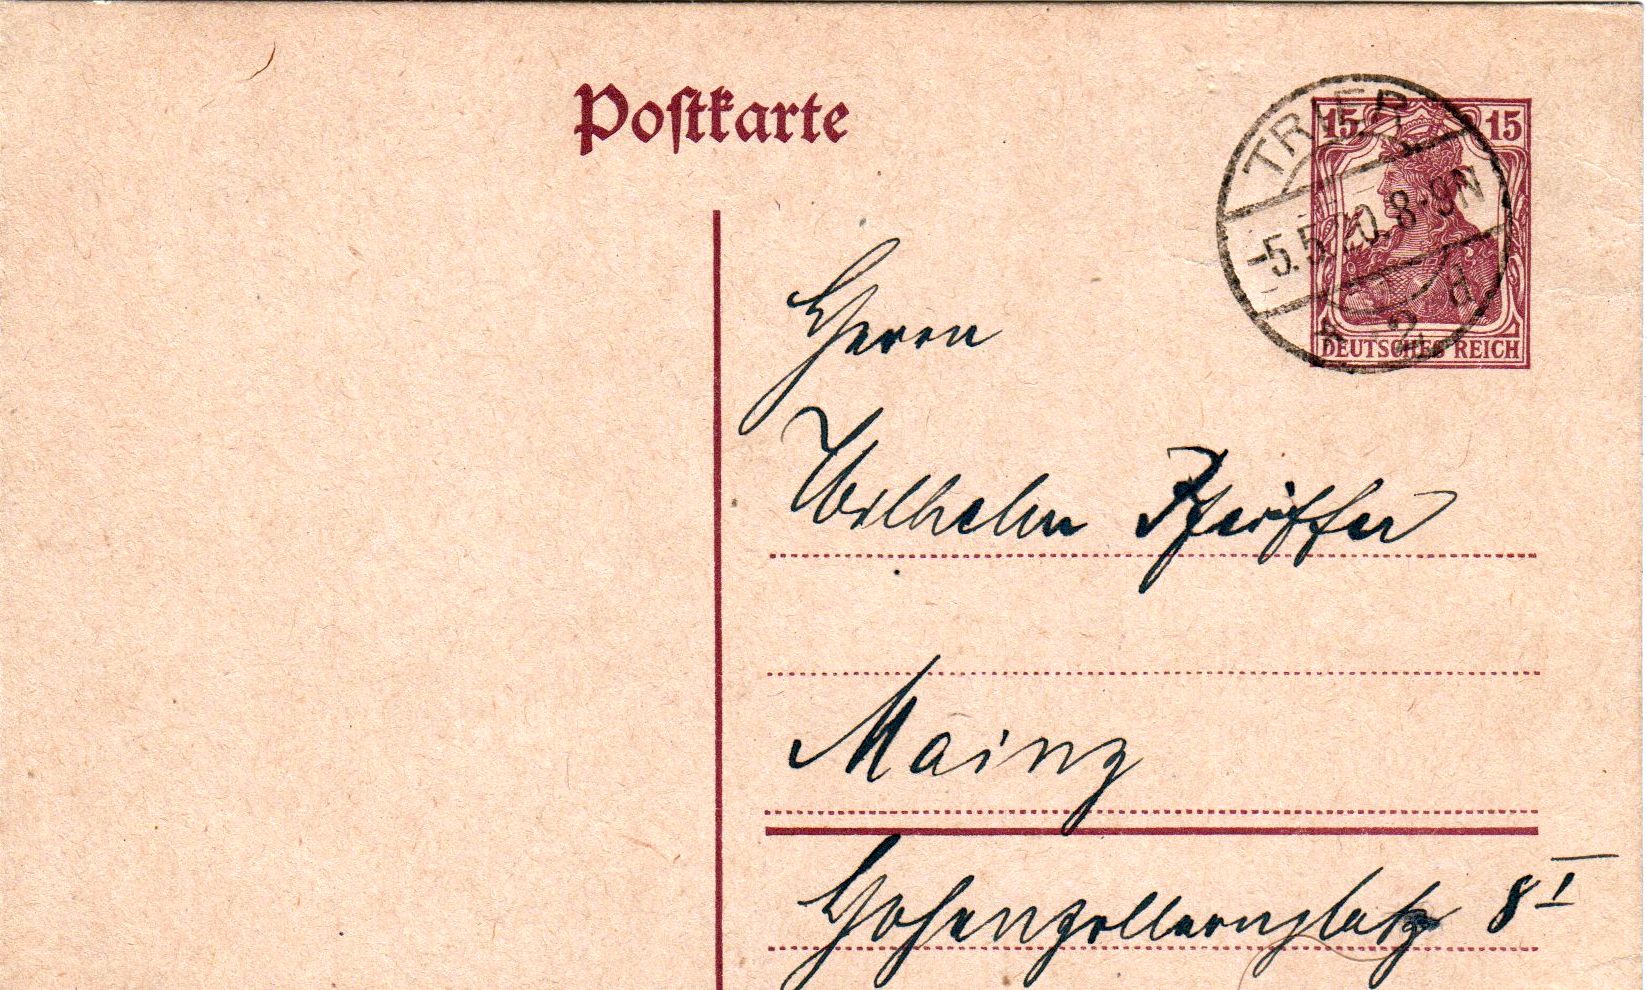 Postkarte
15 15
TRIER
-5.5.20.8-9N
* 2 d
DEUTSCHES REICH
Herrn
Wilhelm Pfeiffer
Mainz
Hohenzollernplatz 8 I